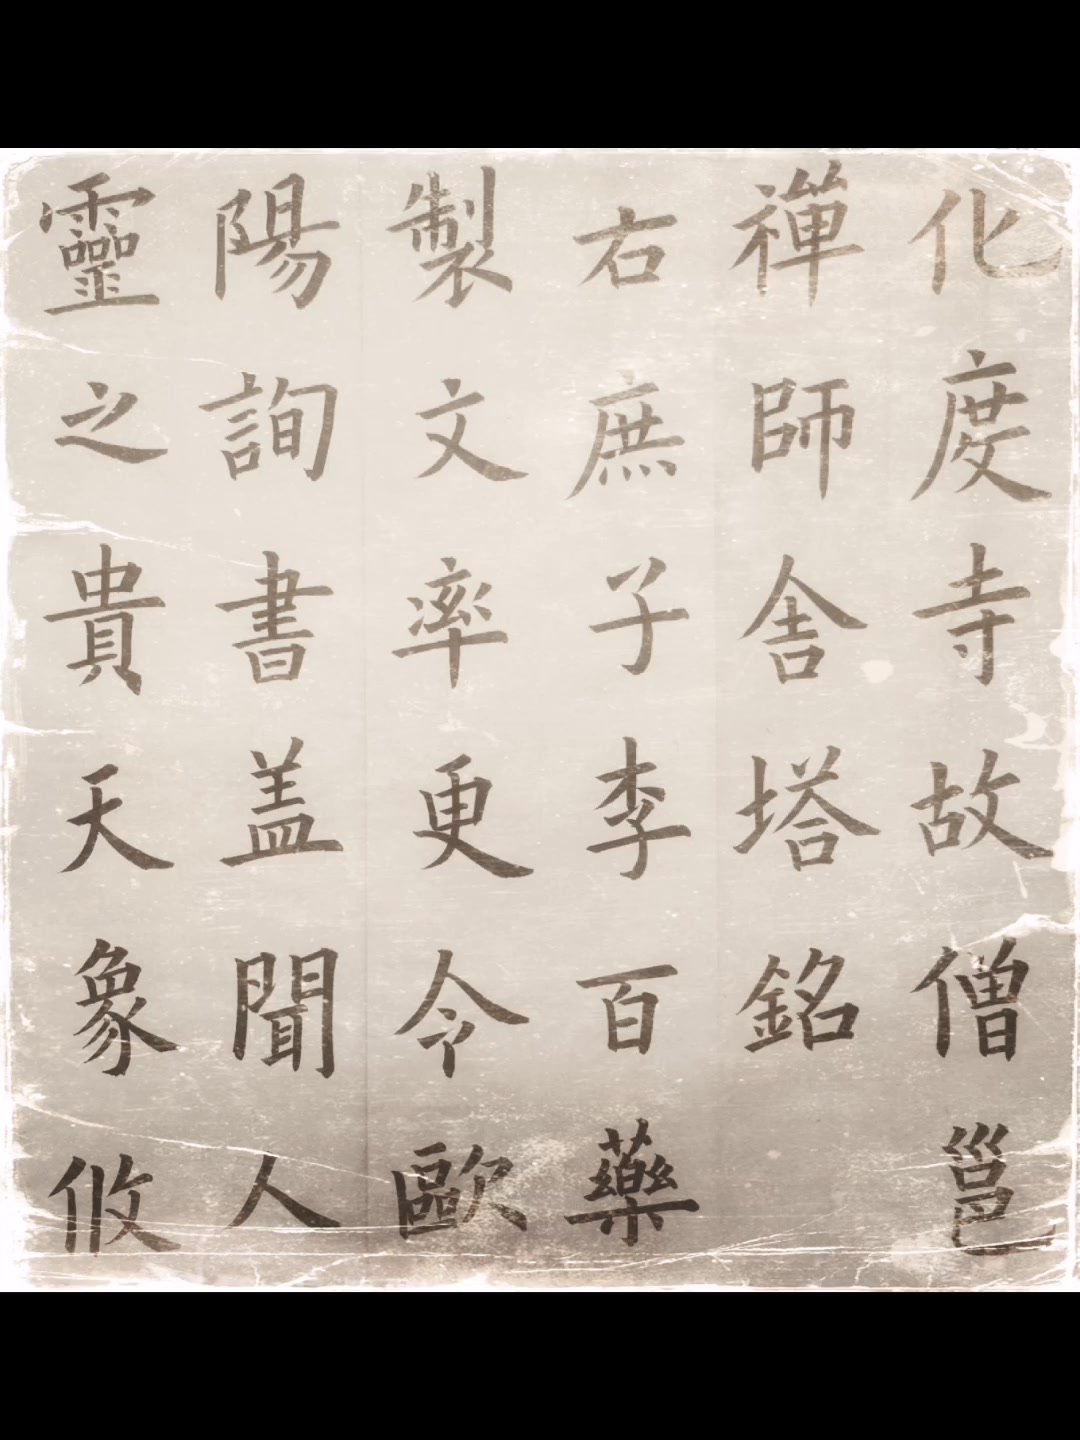 化度寺故僧邕
禪師舎塔銘
右庶子李百藥
製文率更令歐
陽詢書盖聞人
靈之貴天象攸